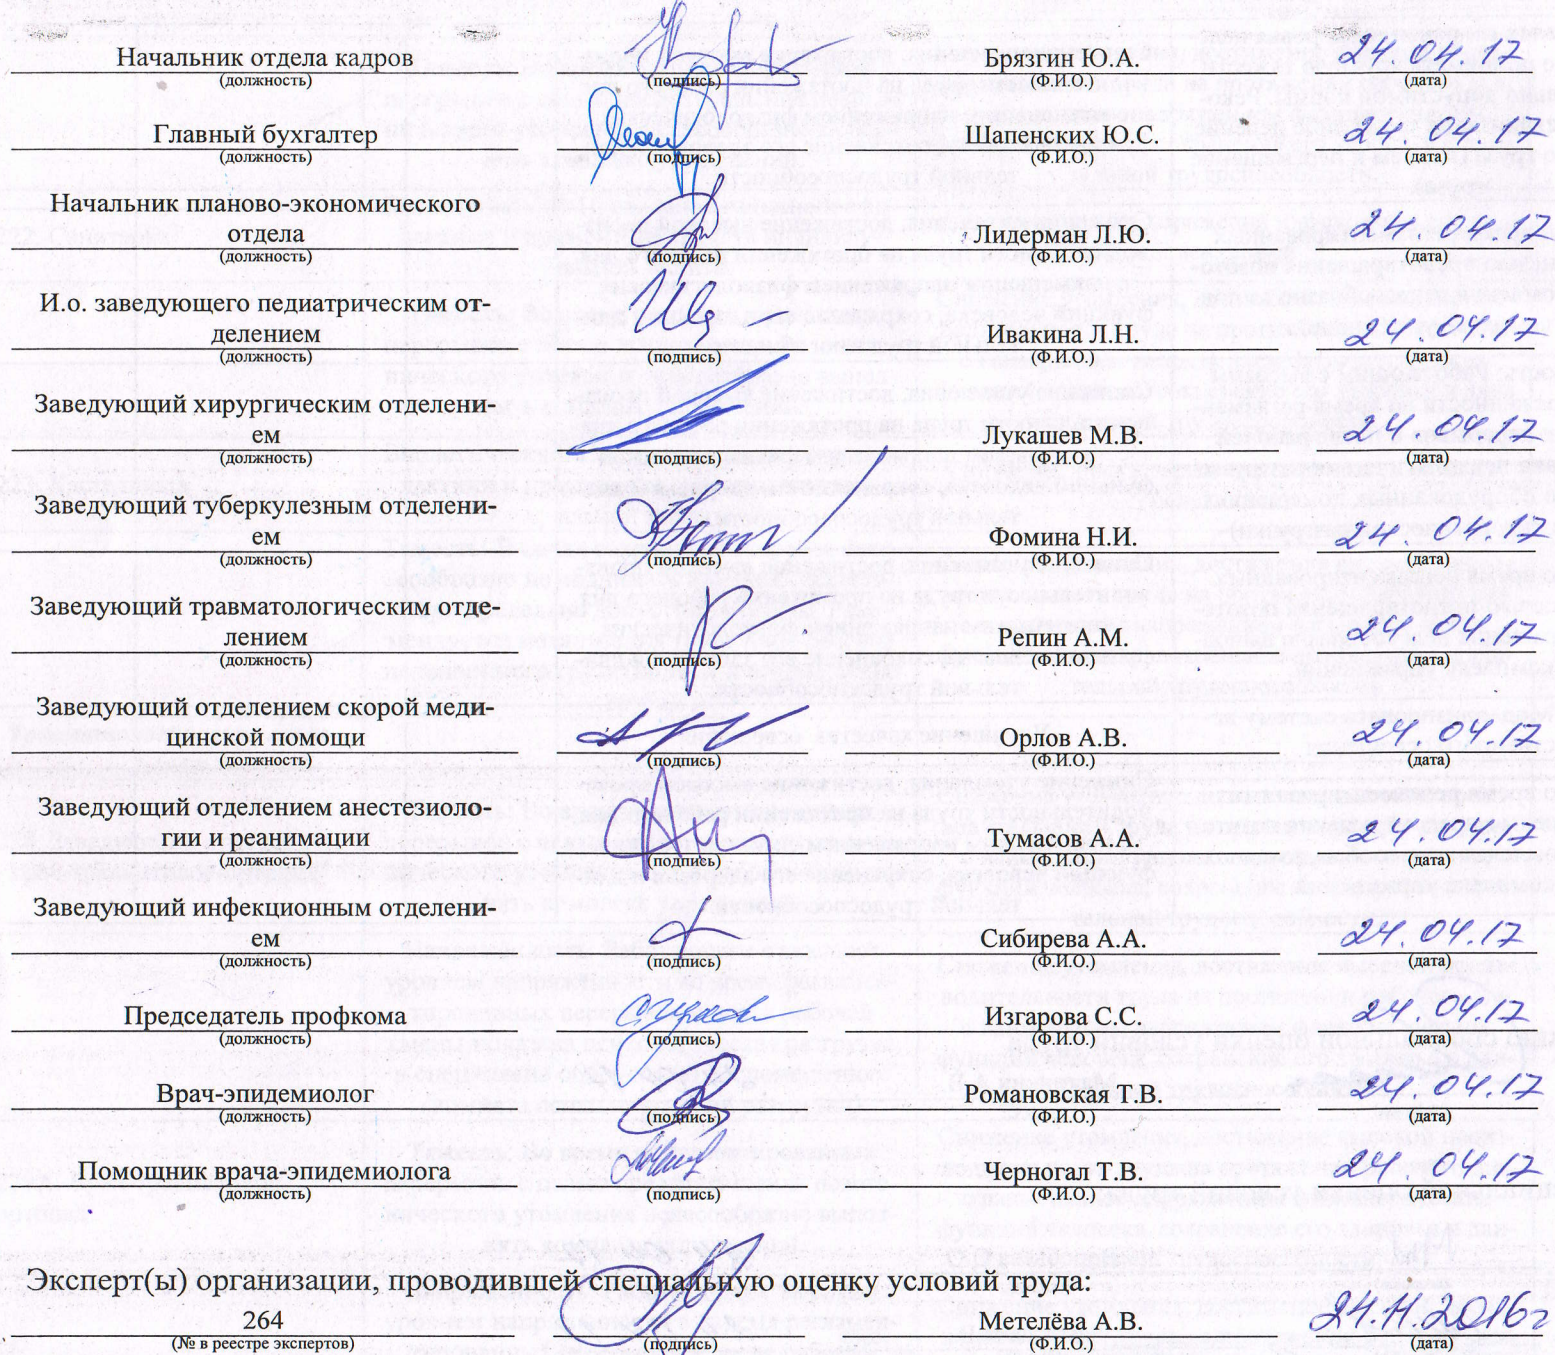 Начальник отдела кадров Брязгин Ю.А. 24.04.17
(должность) (подпись) (Ф.И.О.) (дата)
Главный бухгалтер Шапенских Ю.С. 24.04.17
(должность) (подпись) (Ф.И.О.) (дата)
Начальник планово-экономического
отдела Лидерман Л.Ю. 24.04.17
(должность) (подпись) (Ф.И.О.) (дата)
И.о. заведующего педиатрическим от-
делением Ивакина Л.Н. 24.04.17
(должность) (подпись) (Ф.И.О.) (дата)
Заведующий хирургическим отделени-
ем Лукашев М.В. 24.04.17
(должность) (подпись) (Ф.И.О.) (дата)
Заведующий туберкулезным отделени-
ем Фомина Н.И. 24.04.17
(должность) (подпись) (Ф.И.О.) (дата)
Заведующий травматологическим отде-
лением Репин А.М. 24.04.17
(должность) (подпись) (Ф.И.О.) (дата)
Заведующий отделением скорой меди-
цинской помощи Орлов А.В. 24.04.17
(должность) (подпись) (Ф.И.О.) (дата)
Заведующий отделением анестезиоло-
гии и реанимации Тумасов А.А. 24.04.17
(должность) (подпись) (Ф.И.О.) (дата)
Заведующий инфекционным отделени-
ем Сибирева А.А. 24.04.17
(должность) (подпись) (Ф.И.О.) (дата)
Председатель профкома Изгарова С.С. 24.04.17
(должность) (подпись) (Ф.И.О.) (дата)
Врач-эпидемиолог Романовская Т.В. 24.04.17
(должность) (подпись) (Ф.И.О.) (дата)
Помощник врача-эпидемиолога Черногал Т.В. 24.04.17
(должность) (подпись) (Ф.И.О.) (дата)
Эксперт(ы) организации, проводившей специальную оценку условий труда:
264 Метелёва А.В. 24.11.2016г
(№ в реестре экспертов) (подпись) (Ф.И.О.) (дата)